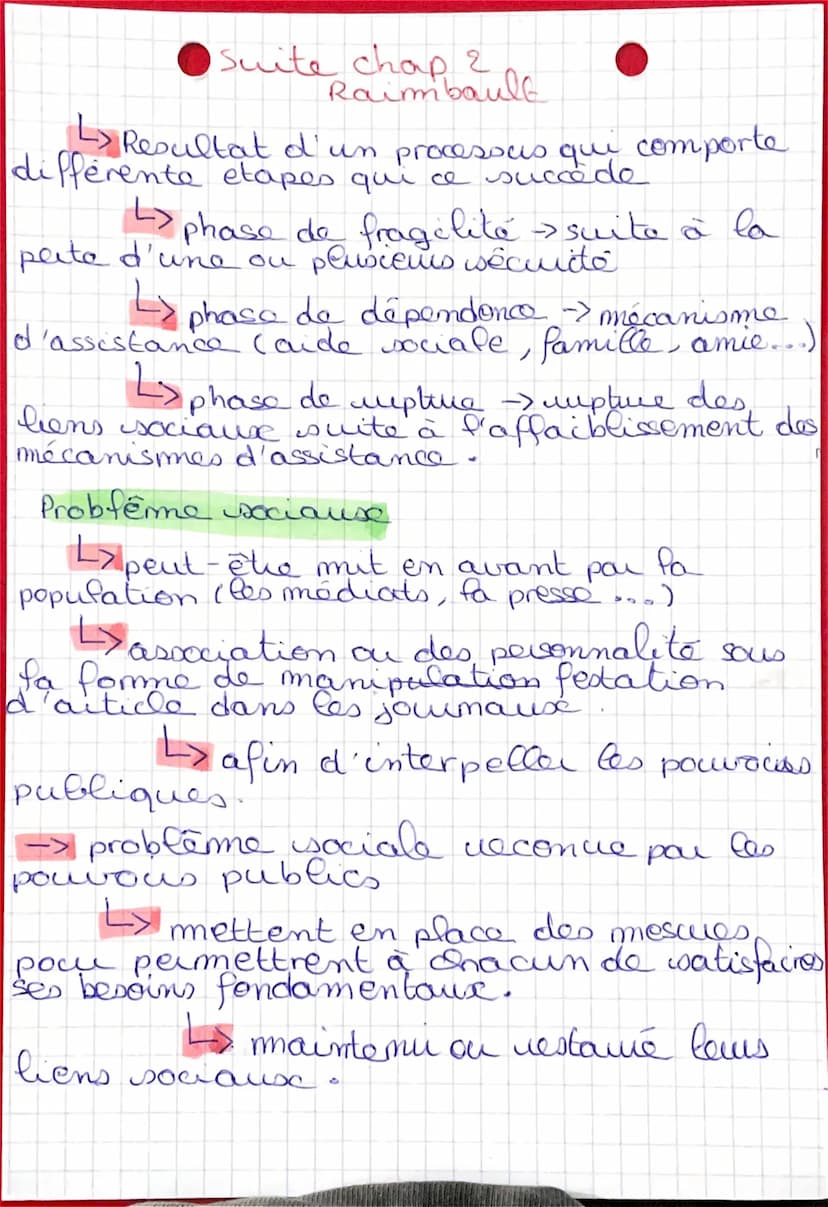 Suite chap 2
Raimbault
↳ Resultat d'un processus qui comporte
différente etapes qui ce succède
↳ phase de fragilité → suite à la
perte d'une ou plusieurs sécurité
↳ phase de dépendance → mécanisme
d'assistance (aide sociale, famille, amie...)
↳ phase de rupture → rupture des
liens sociaux suite à l'affaiblissement des
mécanismes d'assistance.
Problême sociause
↳ peut-être mit en avant par la
population (les médiats, la presse ...)
↳ association ou des personnalité sous
la forme de manipulation festation
d'article dans les journause.
↳ afin d'interpeller les pouvoirs
publiques.
→ problême sociale reconnue par les
pouvoirs publics
↳ mettent en place des mesures
pour permettrent à chacun de satisfaires
ses besoins fondamentaux.
↳ maintenu ou restauré leurs
liens sociause.